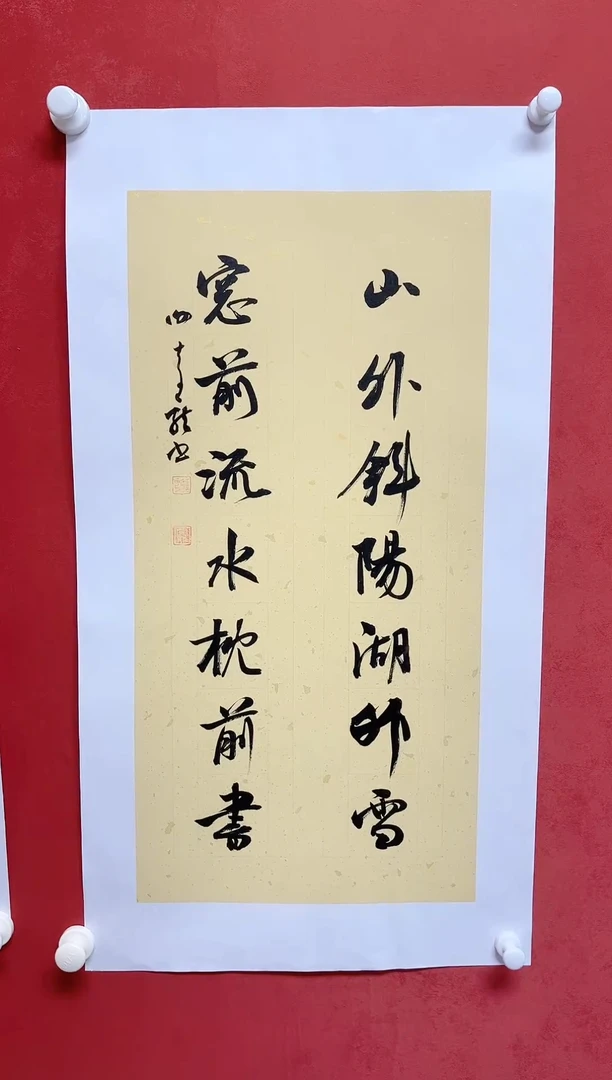 山外斜陽湖外雪
窓前流水枕前書